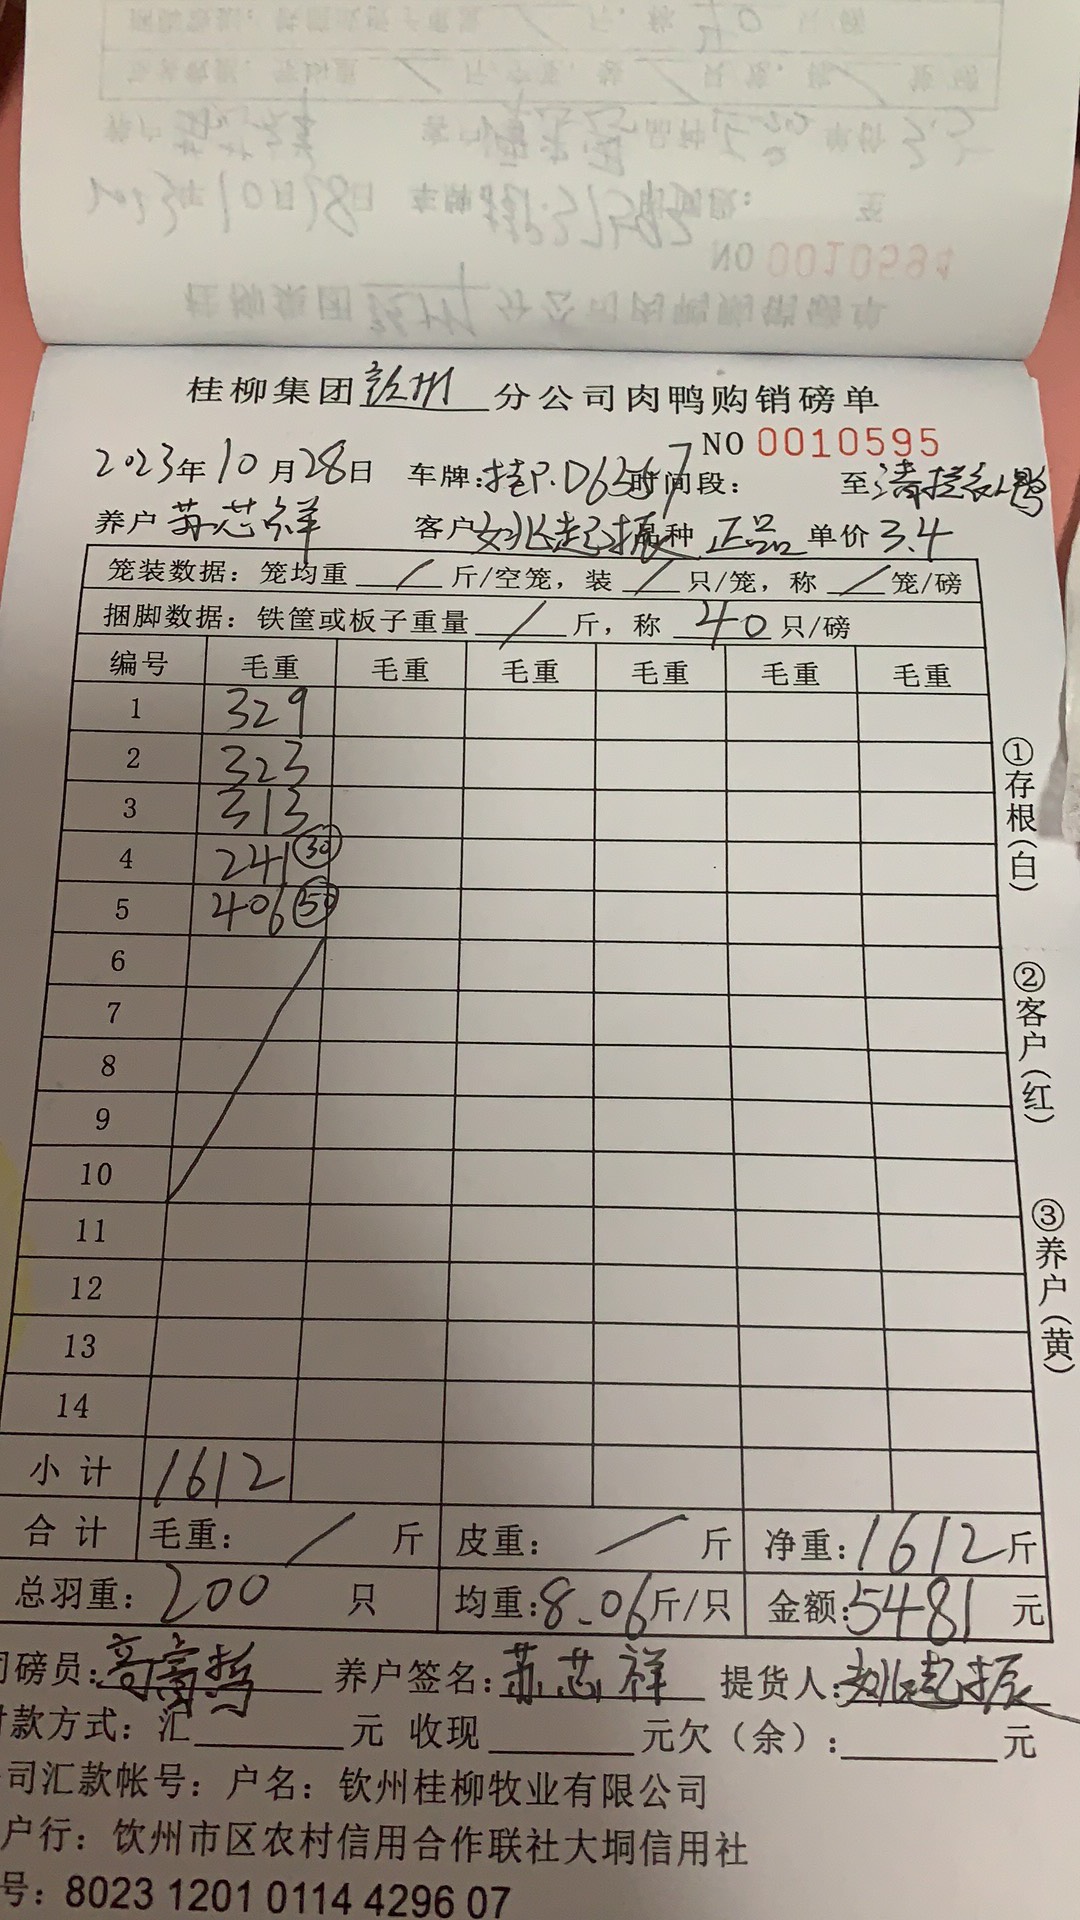 桂柳集团钦州分公司肉鸭购销磅单
NO 0010595
2023年10月28日 车牌:桂P.D6367 时间段: 至清拦红鸭
养户 苏芯祥 客户 姚起振 品种 正品 单价 3.4
笼装数据：笼均重 / 斤/空笼，装 / 只/笼，称 / 笼/磅
捆脚数据：铁筐或板子重量 / 斤，称 40 只/磅
编号 毛重 毛重 毛重 毛重 毛重 毛重
1 329
2 323
3 313
4 241 30
5 406 50
6
7
8
9
10
11
12
13
14
小计 1612
合计 毛重： / 斤 皮重： / 斤 净重:1612斤
总羽重：200 只 均重:8.06斤/只 金额:5481 元
司磅员: 养户签名:苏芯祥 提货人:姚起振
付款方式：汇 元 收现 元欠（余）: 元
司汇款帐号：户名：钦州桂柳牧业有限公司
户行：钦州市区农村信用合作联社大垌信用社
号：8023 1201 0114 4296 07
①存根(白)
②客户(红)
③养户(黄)